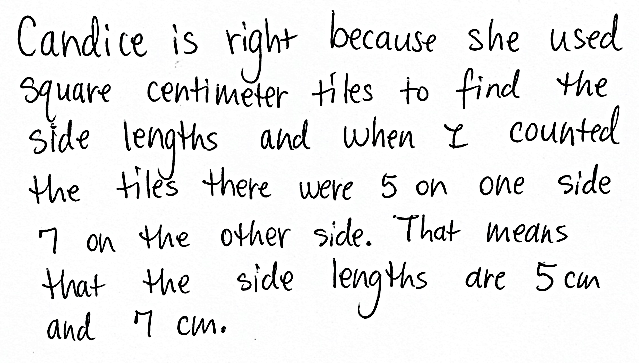 Candice is right because she used
square centimeter tiles to find the
side lengths and when I counted
the tiles there were 5 on one side
7 on the other side. That means
that the side lengths are 5 cm
and 7 cm.